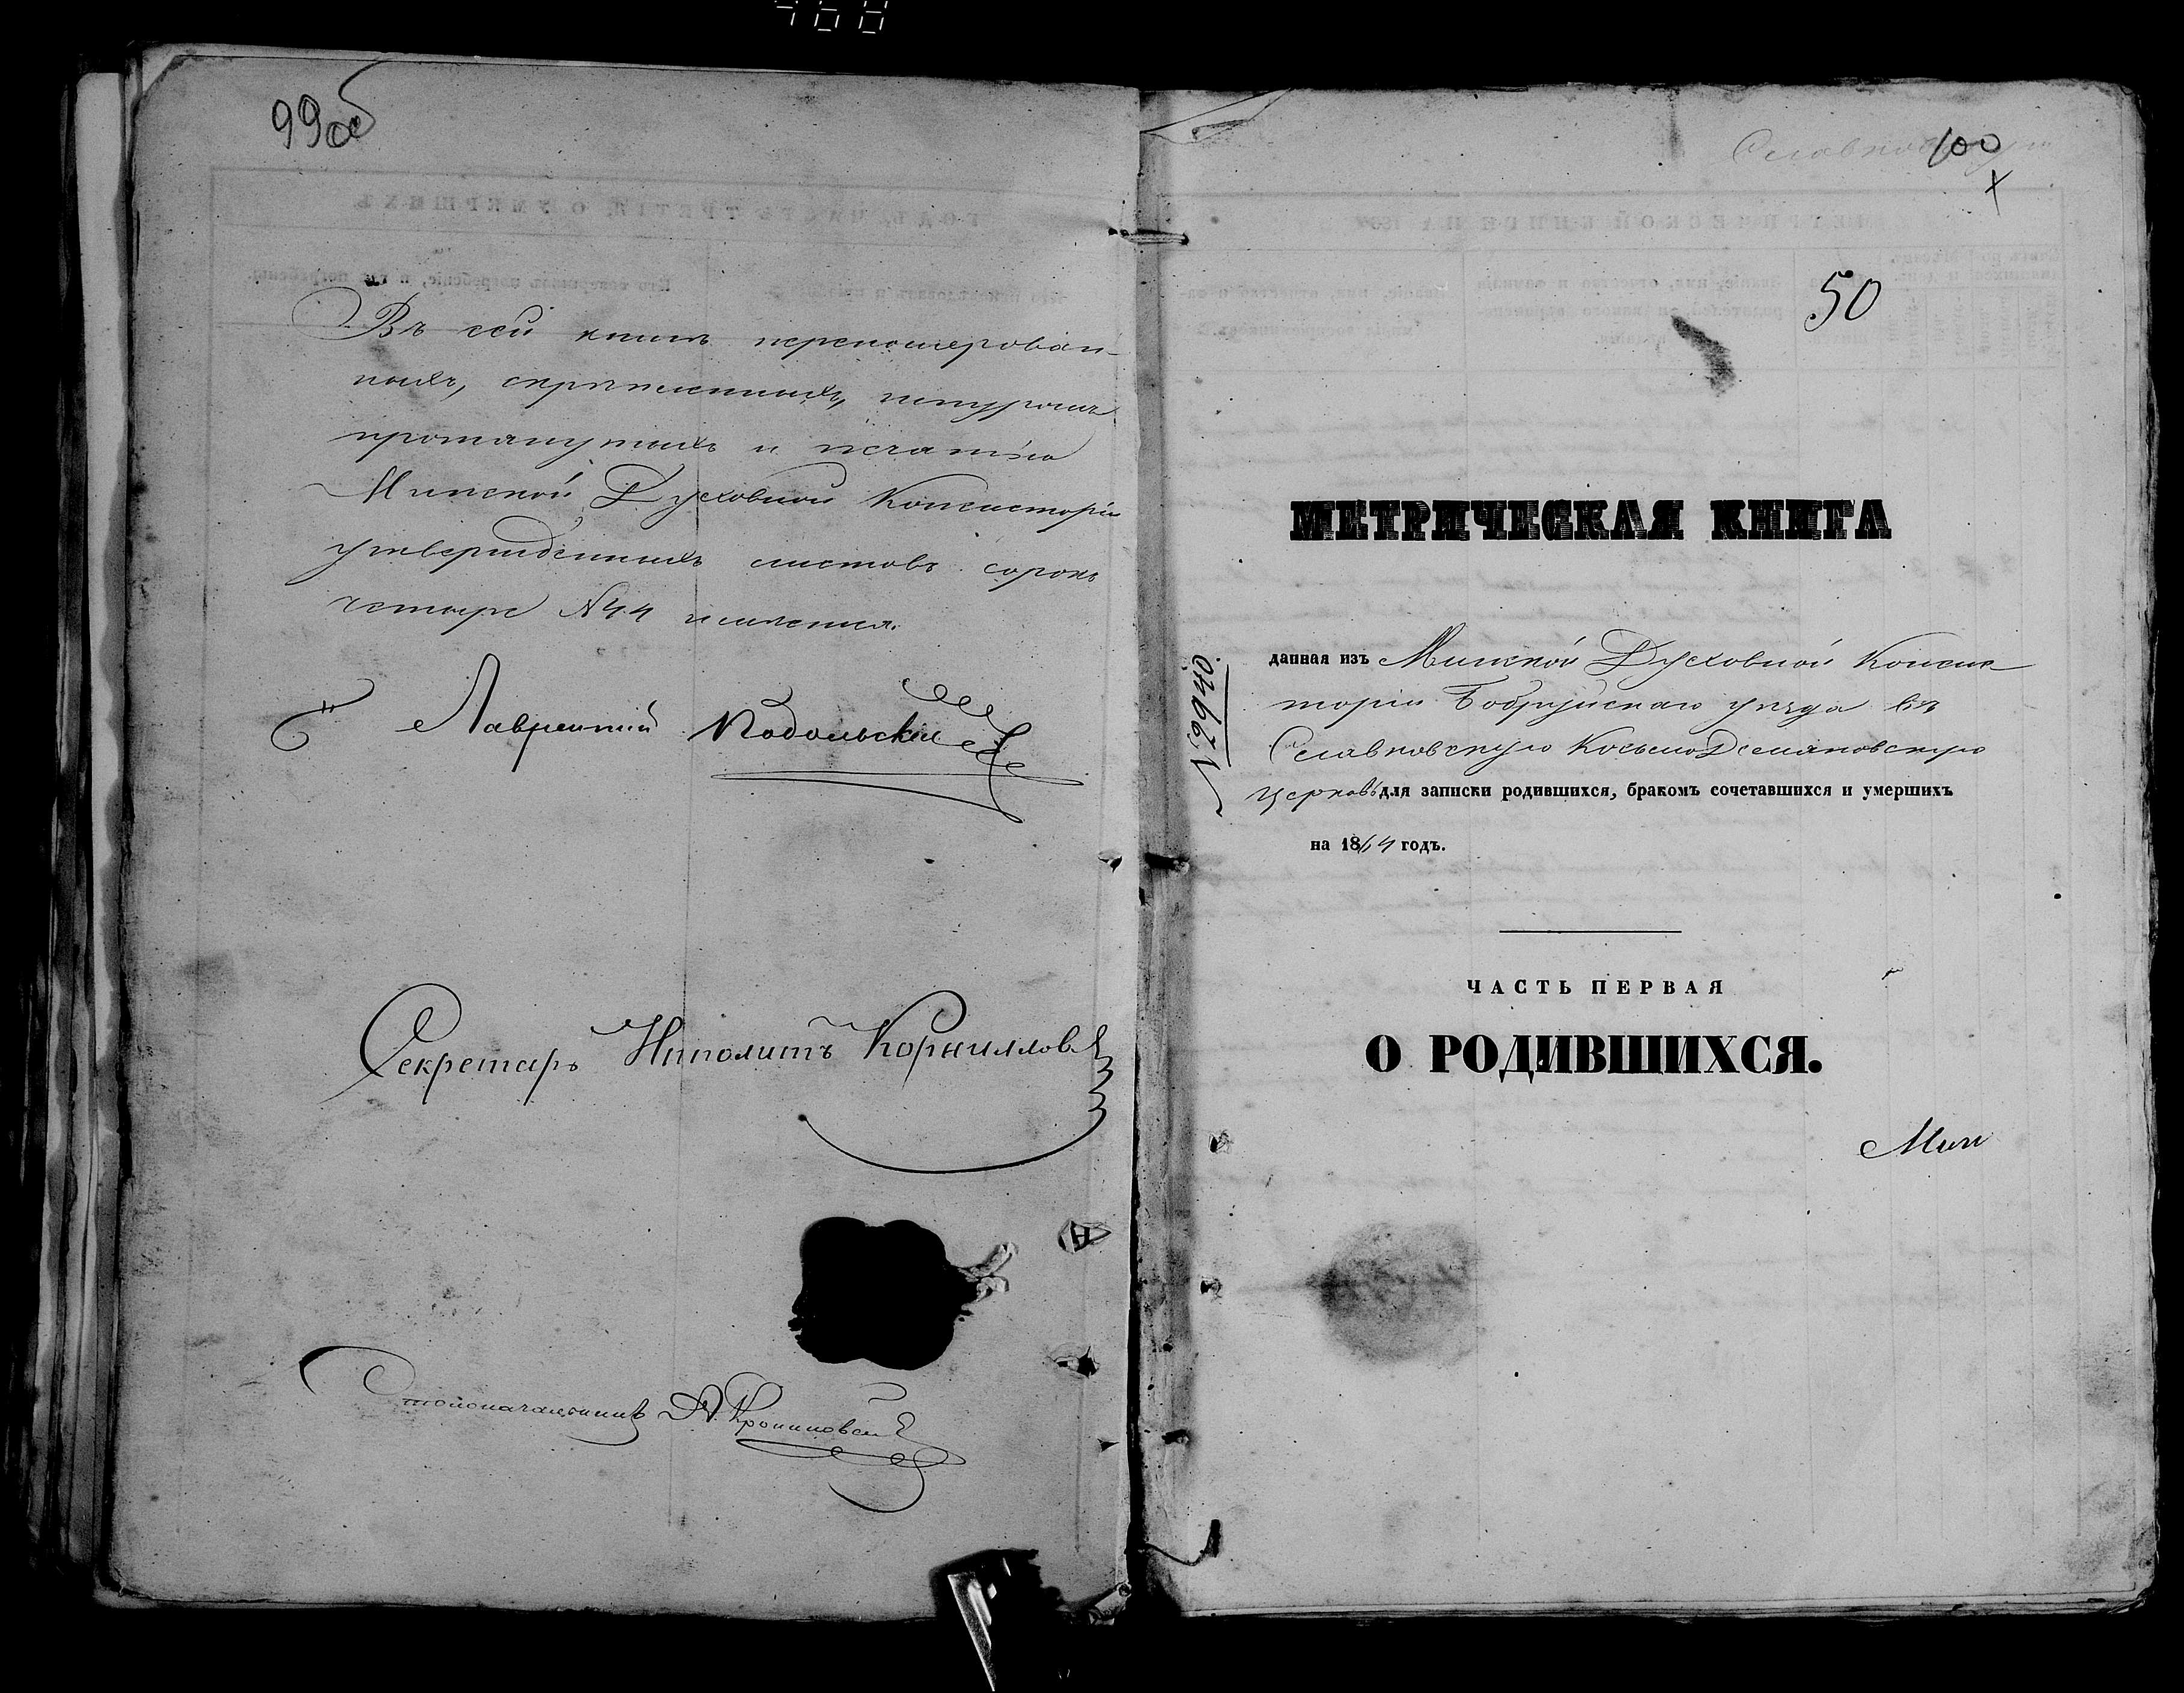 468
99об
Въ сей книгѣ перенумерован-
ныхъ, скрѣпленныхъ, шнуромъ
протянутыхъ и печатію
Минской Духовной Консисторіи
утвержденныхъ листовъ сорокъ
четыре №44 исчисленія.
Лаврентій Подольскій
Секретарь Ипполитъ Корниллов
Столоначальникъ
100
Х
50
МЕТРИЧЕСКАЯ КНИГА
№2940.
данная изъ Минской Духовной Консис
торіи Бобруйскаго уѣзда въ
Славковскую КосьмоДеміановскую
церковь для записки родившихся, бракомъ сочетавшихся и умершихъ
на 1864 годъ.
ЧАСТЬ ПЕРВАЯ
О РОДИВШИХСЯ.
Мин